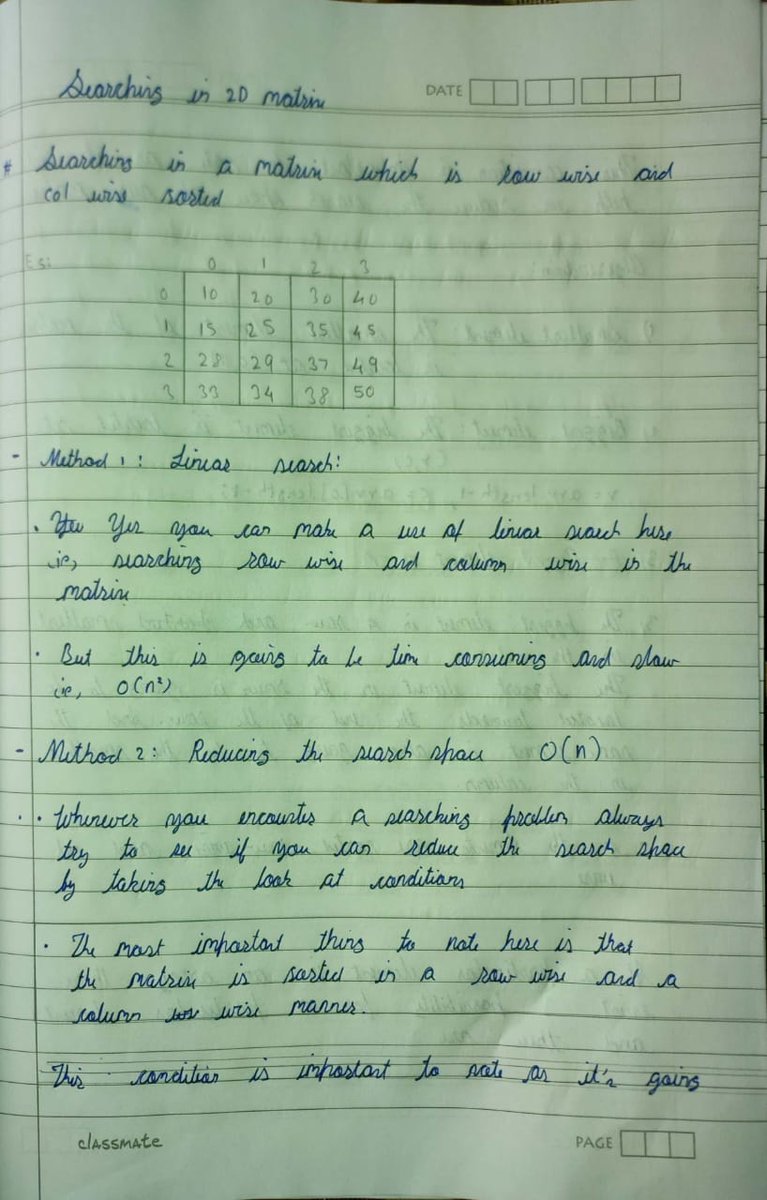 Searching in 2D matrix
DATE
* Searching in a matrix which is row wise and
col wise sorted
Eg:
0 1 2 3
0 10 20 30 40
1 15 25 35 45
2 28 29 37 49
3 33 34 38 50
- Method 1: Linear search:
• Yes you can make a use of linear search here
ie, searching row wise and column wise in the
matrix
• But this is going to be time consuming and slow
ie, O(n²)
- Method 2: Reducing the search space O(n)
• Whenever you encounter a searching problem always
try to see if you can reduce the search space
by taking the look at conditions
• The most important thing to note here is that
the matrix is sorted in a row wise and a
column wise manner.
This condition is important to note as it's going
classmate
PAGE